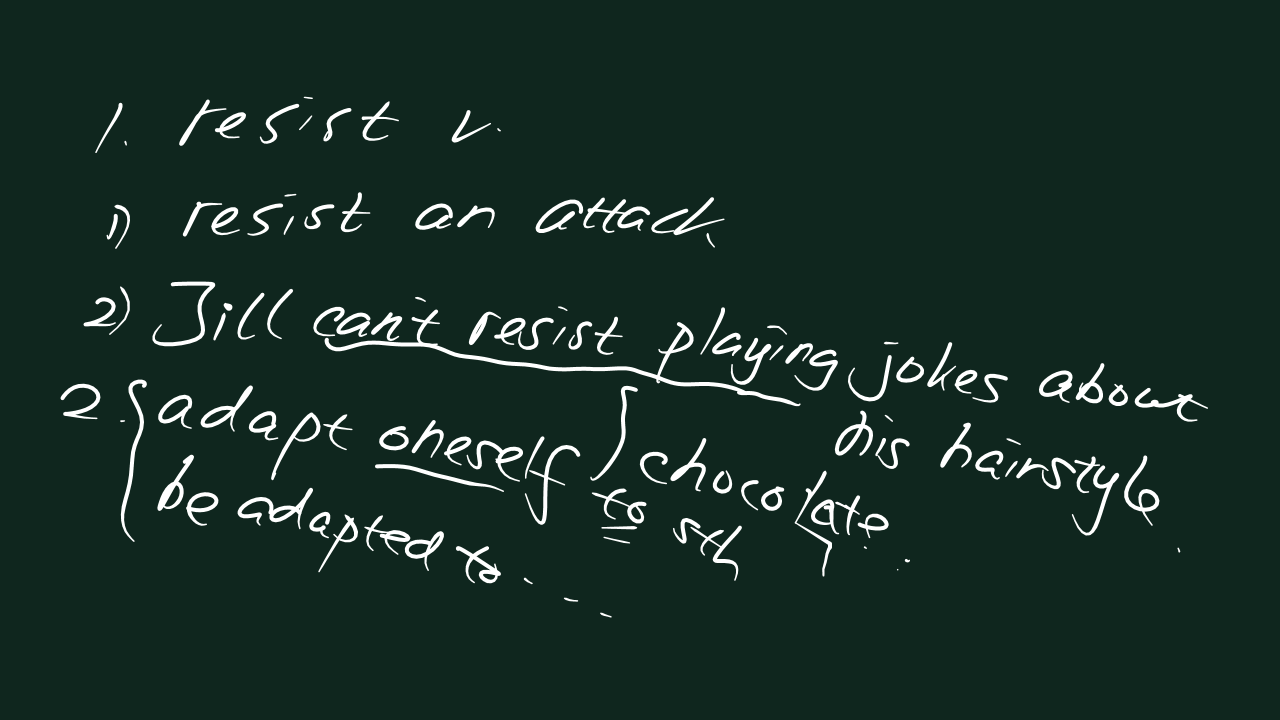 1. resist v.
1) resist an attack
2) Jill can't resist playing jokes about
his hairstyle.
chocolate.
2. adapt oneself to sth
be adapted to...